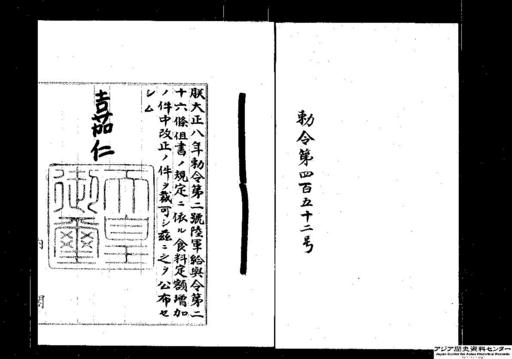 勅令第四百五十二号
朕大正八年勅令第二號陸軍給與令第二
十六條但書ノ規定ニ依ル食料定額増加
ノ件中改正ノ件ヲ裁可シ茲ニ之ヲ公布セ
シム
嘉仁
天皇
御璽
内閣
アジア歴史資料センター
Japan Center for Asian Historical Records